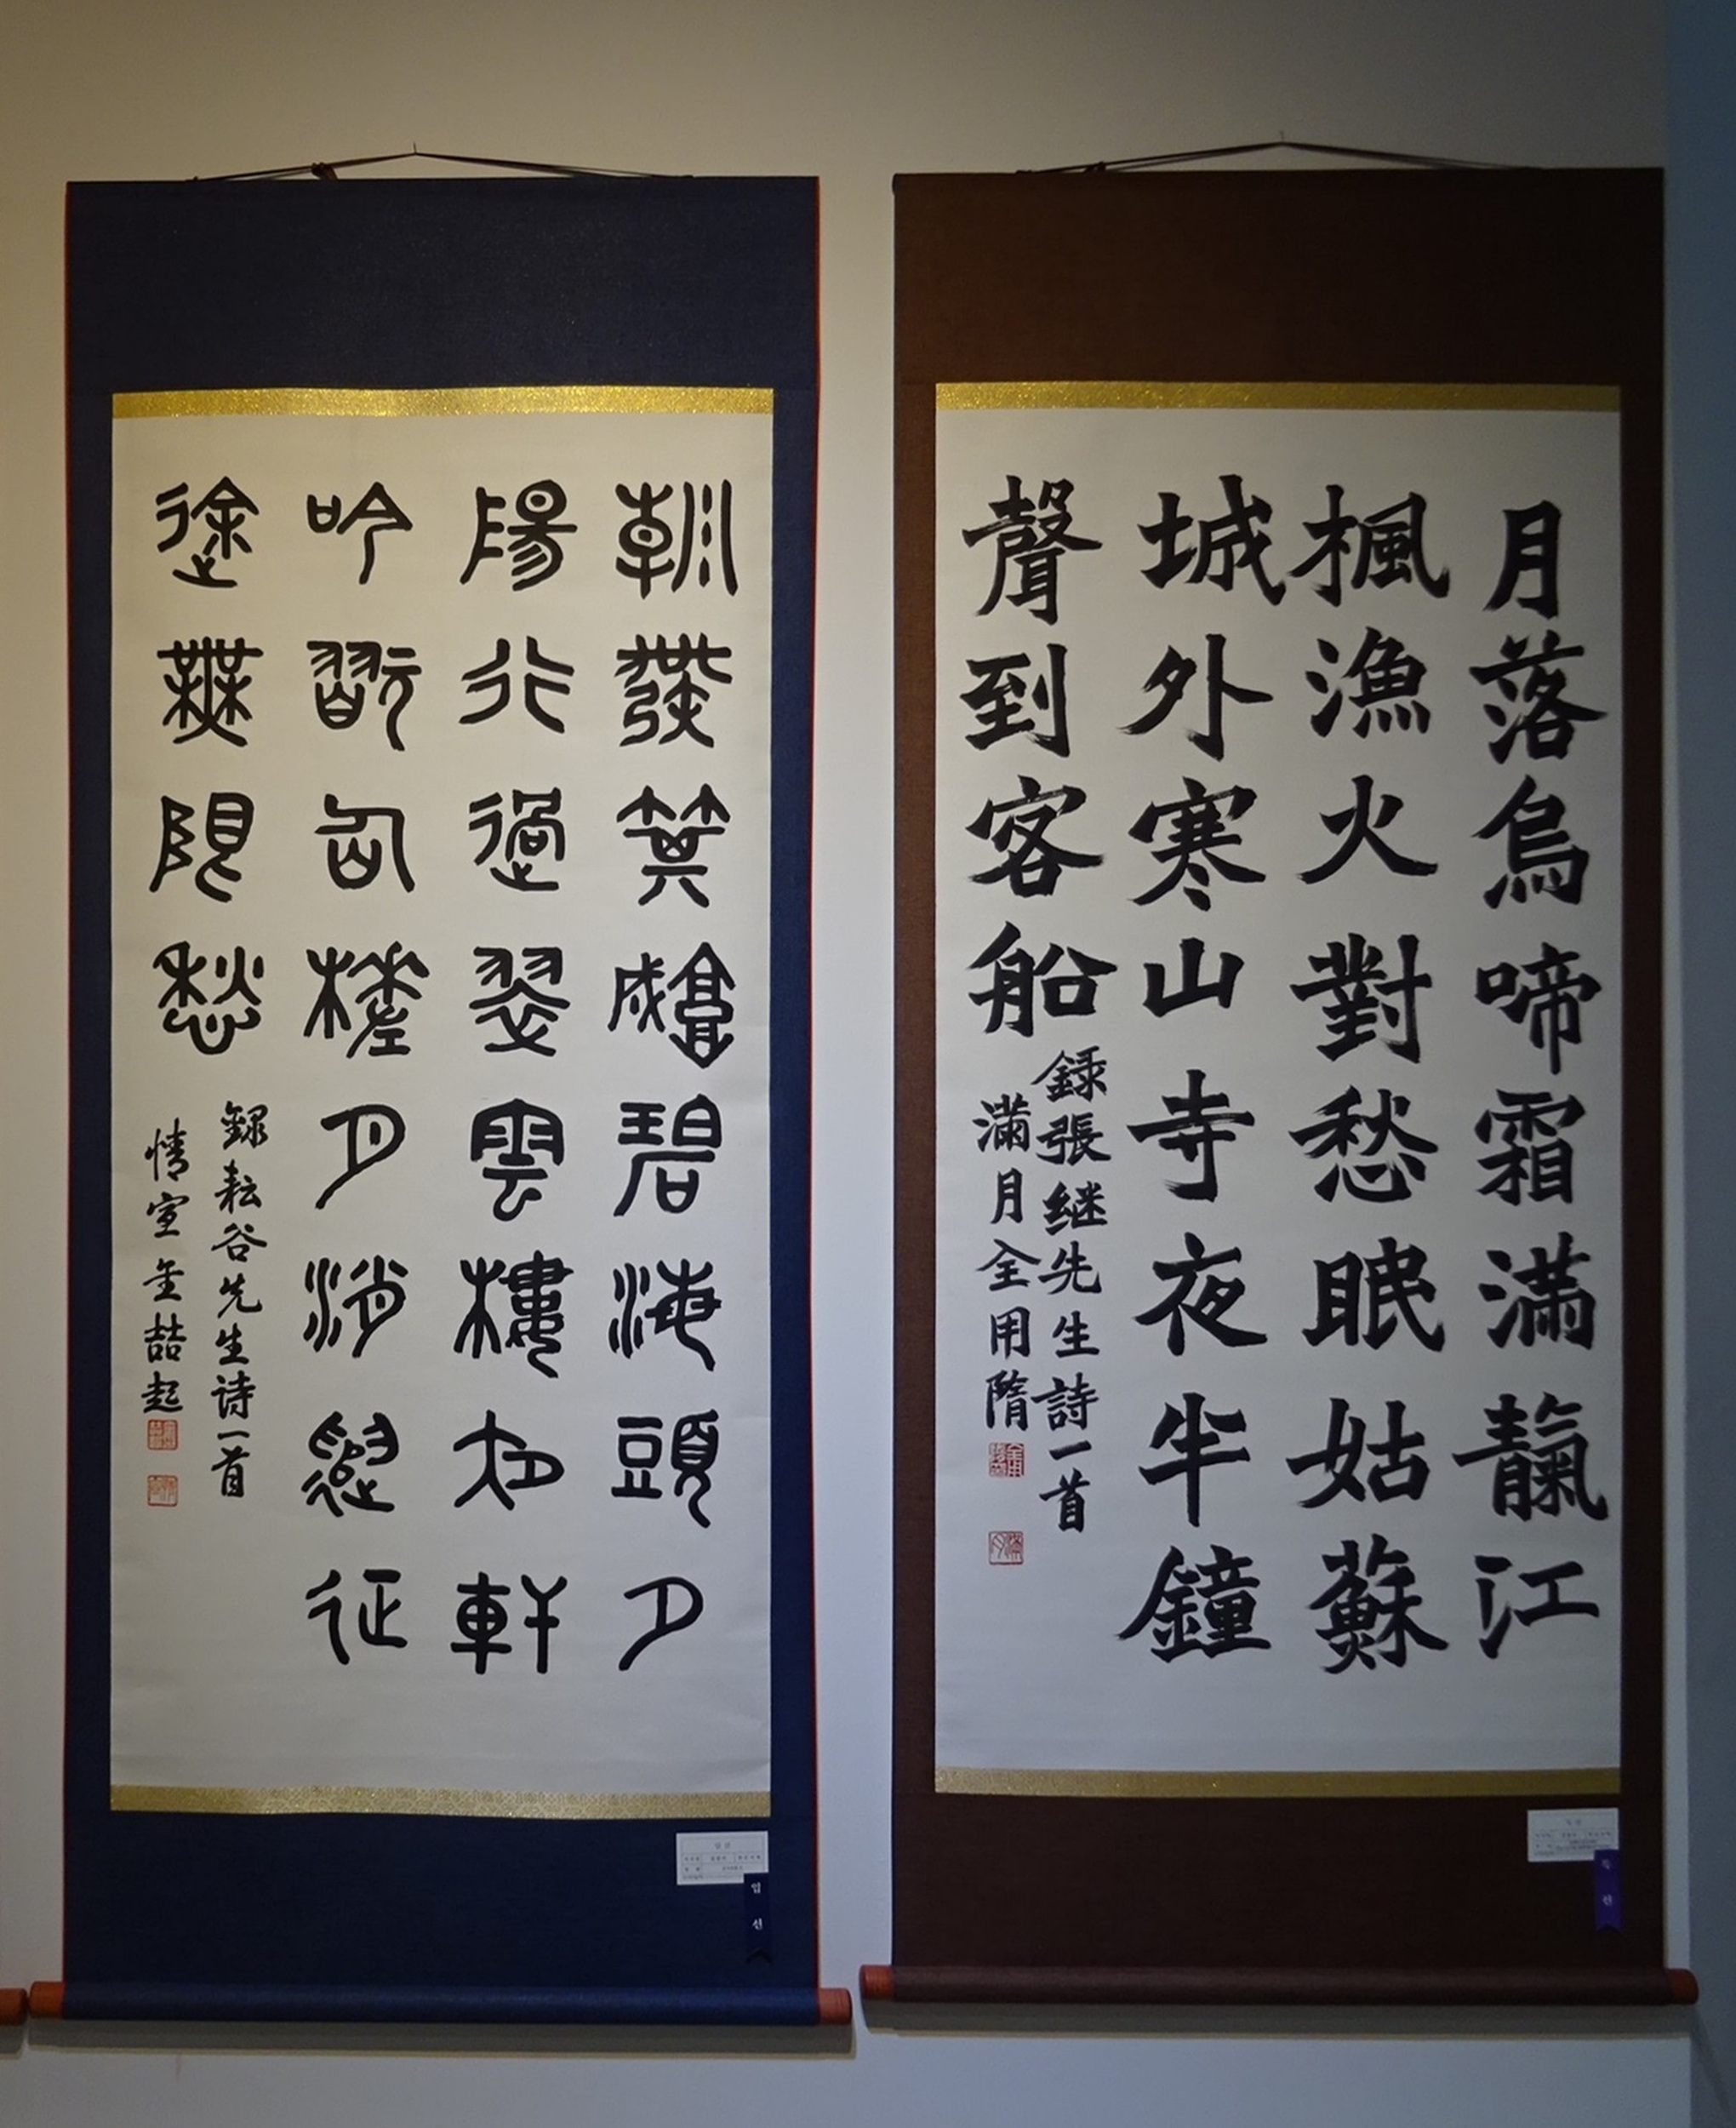 月落烏啼霜滿靝江
楓漁火對愁眠姑蘇
城外寒山寺夜半鐘
聲到客船
録張継先生詩一首
滿月全用隋
특선
朝發箕城碧海頭夕
陽行過翠雲樓知軒
吟翫句槎月消遣征
途無限愁
録耘谷先生诗一首
情室金喆起
입선